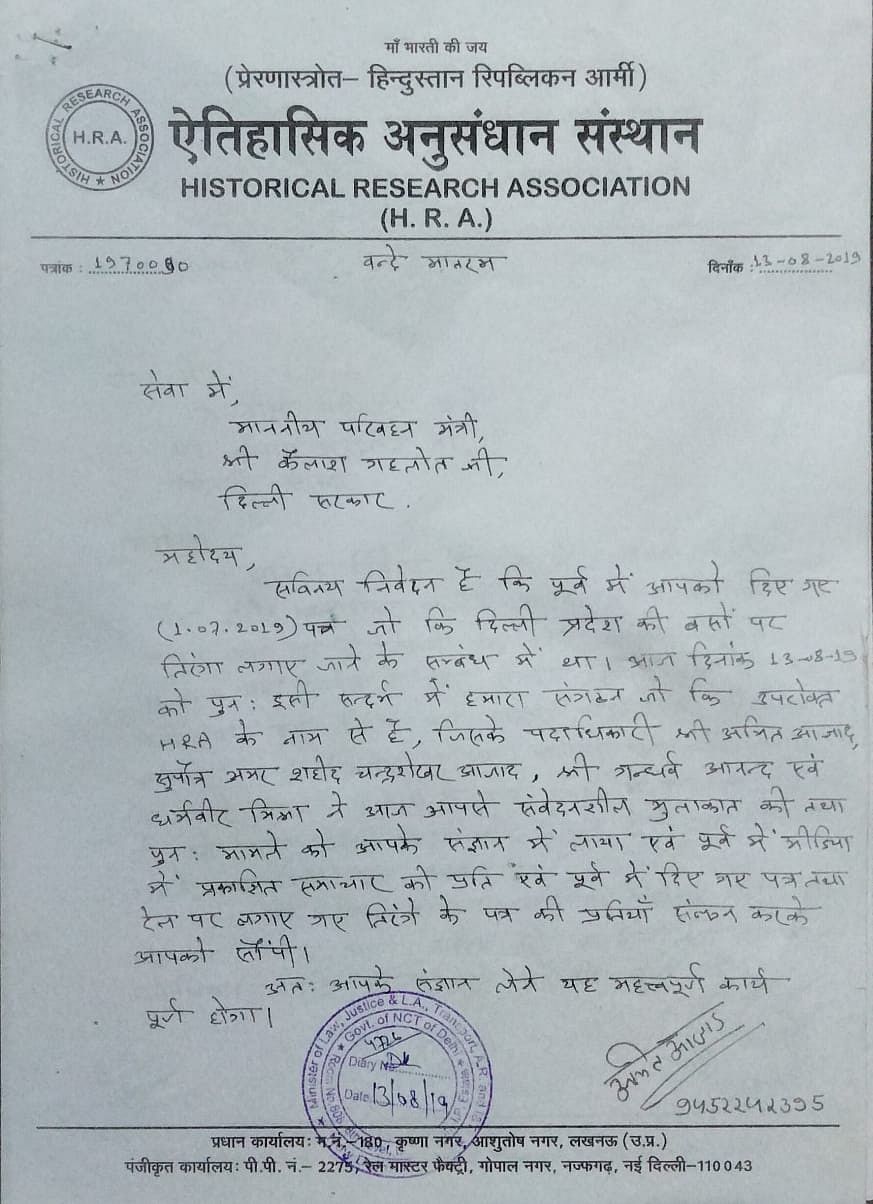 माँ भारती की जय
(प्रेरणास्त्रोत– हिन्दुस्तान रिपब्लिकन आर्मी)
HISTORICAL RESEARCH ASSOCIATION
H.R.A.
ऐतिहासिक अनुसंधान संस्थान
HISTORICAL RESEARCH ASSOCIATION
(H. R. A.)
पत्रांक : 1970090 वन्दे मातरम दिनाँक : 13-08-2019
सेवा में,
माननीय परिवहन मंत्री,
श्री कैलाश गहलोत जी,
दिल्ली सरकार.
महोदय,
सविनय निवेदन है कि पूर्व में आपको दिए गए
(1.07.2019) पत्र जो कि दिल्ली प्रदेश की बसों पर
तिरंगा लगाए जाने के सम्बंध में था। आज दिनांक 13-08-19
को पुन: इसी सन्दर्भ में हमारा संगठन जो कि उपरोक्त
HRA के नाम से है, जिसके पदाधिकारी श्री अमित आजाद,
सुपौत्र अमर शहीद चन्द्रशेखर आजाद, श्री गन्धर्व आनन्द एवं
धर्मवीर मिश्रा ने आज आपसे संवेदनशील मुलाकात की तथा
पुन: मामले को आपके संज्ञान में लाया एवं पूर्व में मीडिया
में प्रकाशित समाचार की प्रति एवं पूर्व में दिए गए पत्र तथा
रेल पर लगाए गए तिरंगे के पत्र की प्रतियाँ संलग्न करके
आपको सौंपी।
अत: आपके संज्ञान लेने यह महत्त्वपूर्ण कार्य
पूर्ण होगा।
Minister of Law, Justice & L.A., Transport, A.R. and
Govt. of NCT of Delhi
Diary No.
Date 13/08/19
अमित आजाद
9452242395
प्रधान कार्यालय: म.नं.–180, कृष्णा नगर, आशुतोष नगर, लखनऊ (उ.प्र.)
पंजीकृत कार्यालय: पी.पी. नं.– 2275, रेल मास्टर फैक्ट्री, गोपाल नगर, नज्फगढ़, नई दिल्ली–110043